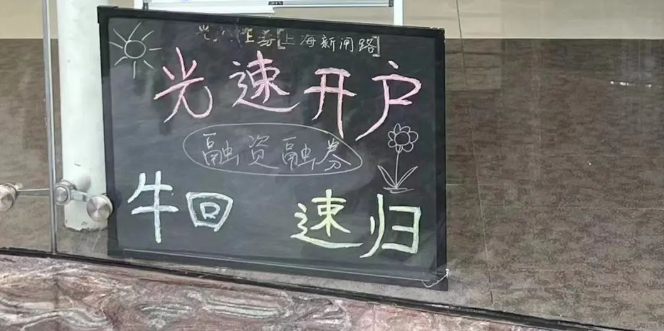 光大证券[上海新闸路]
光速开户
融资融券
牛回 速归